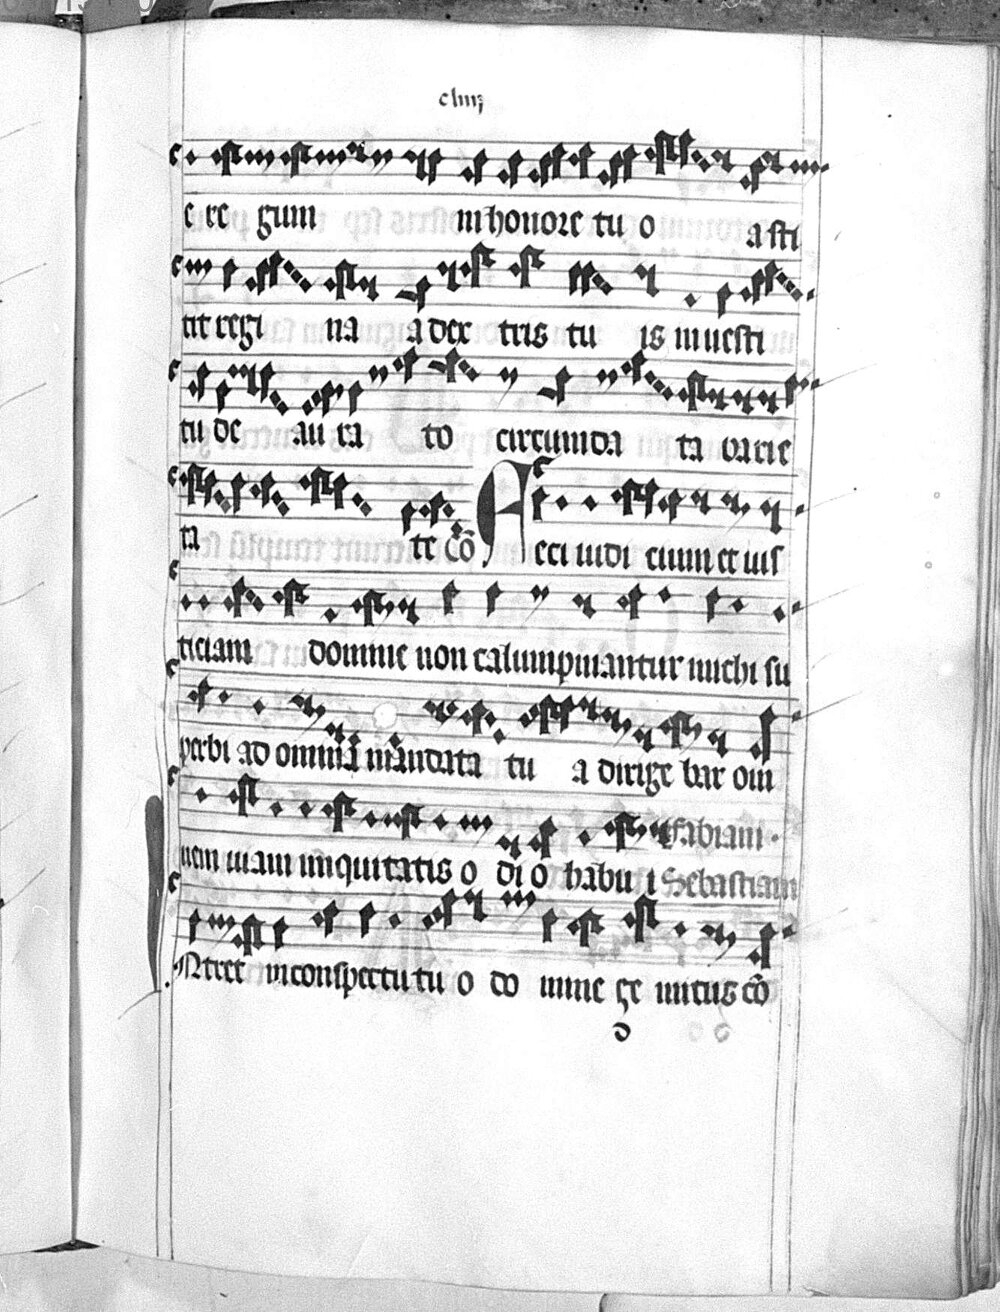 cliiij
e re gum in honore tu o a sti
tit regi na a dex tris tu is in uesti
tu de au ra to circumda ta varie
ta te cō Feci iudi cium et ius
ticiam domine non calumpniantur michi su
perbi ad omnia mandata tu a dirige bar om
nem uiam iniquitatis o di o habu i Fabiani
Sebastiani
Ntret in conspectu tu o do mine ge mitus cō